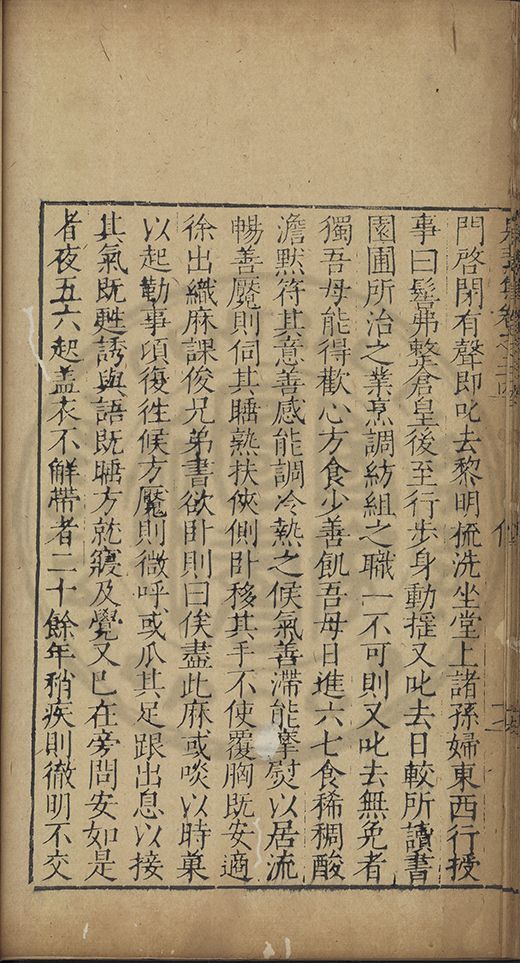 門啓閉有聲即叱去黎明梳洗坐堂上諸孫婦東西行授
事曰髻弗整倉皇後至行步身動摇又叱去日較所讀書
園圃所治之業烹調紡組之職一不可則又叱去無免者
獨吾母能得歡心方食少善飢吾母日進六七食稀稠酸
澹默符其意善感能調冷熱之候氣善滯能摩熨以居流
暢善魘則伺其𥋓熟扶俠側卧移其手不使覆胸既安適
徐出織麻課俊兄弟書欲卧則曰俟盡此麻或啖以時菓
以起勤事頃復徃候方魘則微呼或瓜其足跟出息以接
其氣既甦誘與語既𥋓方就寢及覺又已在旁問安如是
者夜五六起盖衣不觧帶者二十餘年稍疾則徹明不交